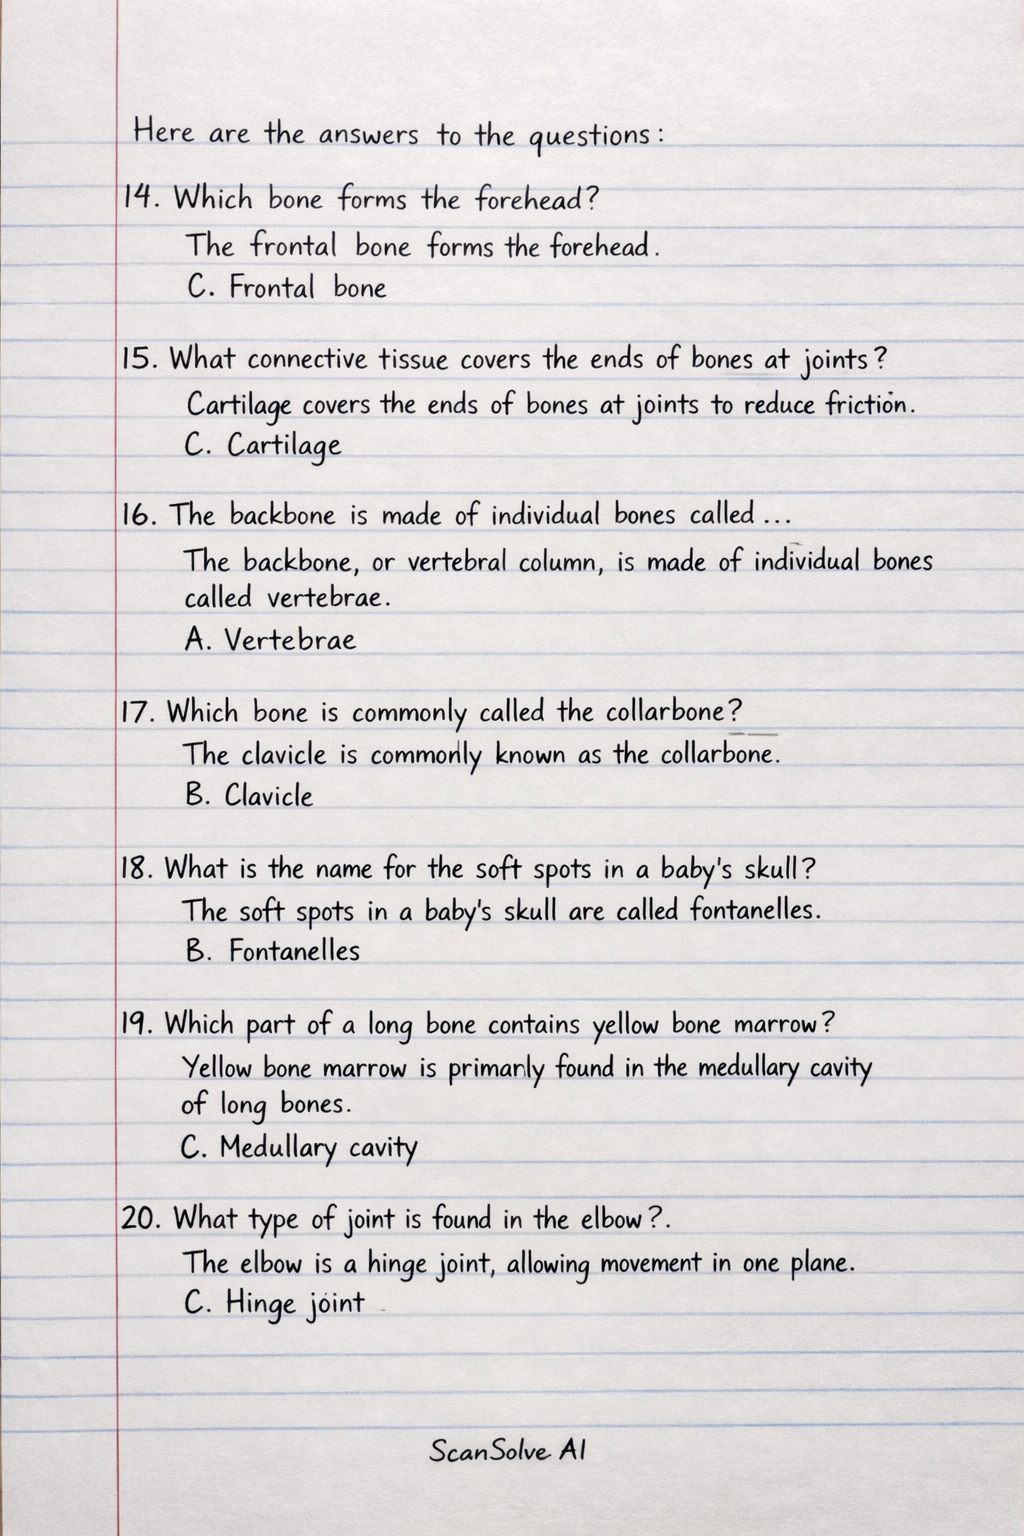 Here are the answers to the questions:
14. Which bone forms the forehead?
The frontal bone forms the forehead.
C. Frontal bone
15. What connective tissue covers the ends of bones at joints?
Cartilage covers the ends of bones at joints to reduce friction.
C. Cartilage
16. The backbone is made of individual bones called ...
The backbone, or vertebral column, is made of individual bones
called vertebrae.
A. Vertebrae
17. Which bone is commonly called the collarbone?
The clavicle is commonly known as the collarbone.
B. Clavicle
18. What is the name for the soft spots in a baby's skull?
The soft spots in a baby's skull are called fontanelles.
B. Fontanelles
19. Which part of a long bone contains yellow bone marrow?
Yellow bone marrow is primarily found in the medullary cavity
of long bones.
C. Medullary cavity
20. What type of joint is found in the elbow?.
The elbow is a hinge joint, allowing movement in one plane.
C. Hinge joint
ScanSolve AI